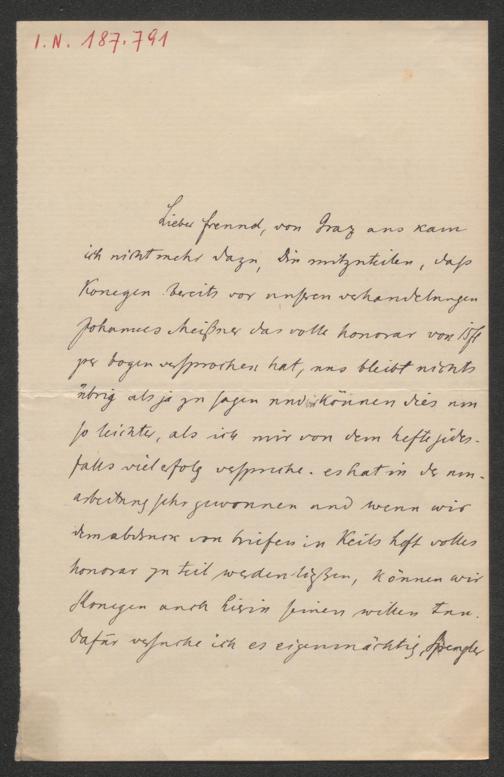 I.N. 187.791
Lieber freund, von Graz aus kam
ich nicht mehr dazu, Dir mitzuteilen, daß
Konegen bereits vor unseren verhandelungen
Johannes Meißner das volle honorar von 15fl
per bogen versprochen hat, uns bleibt nichts
übrig als ja zu sagen und wir können dies um
so leichter, als ich mir von dem hefte jedes-
falls viel erfolg verspreche. es hat in der um-
arbeitung sehr gewonnen und wenn wir
dem abdruck von briefen in Keils heft volles
honorar zu teil werden ließen, können wir
Konegen auch hierin seinen willen tun.
Dafür versuche ich es eigenmächtig, Spengler